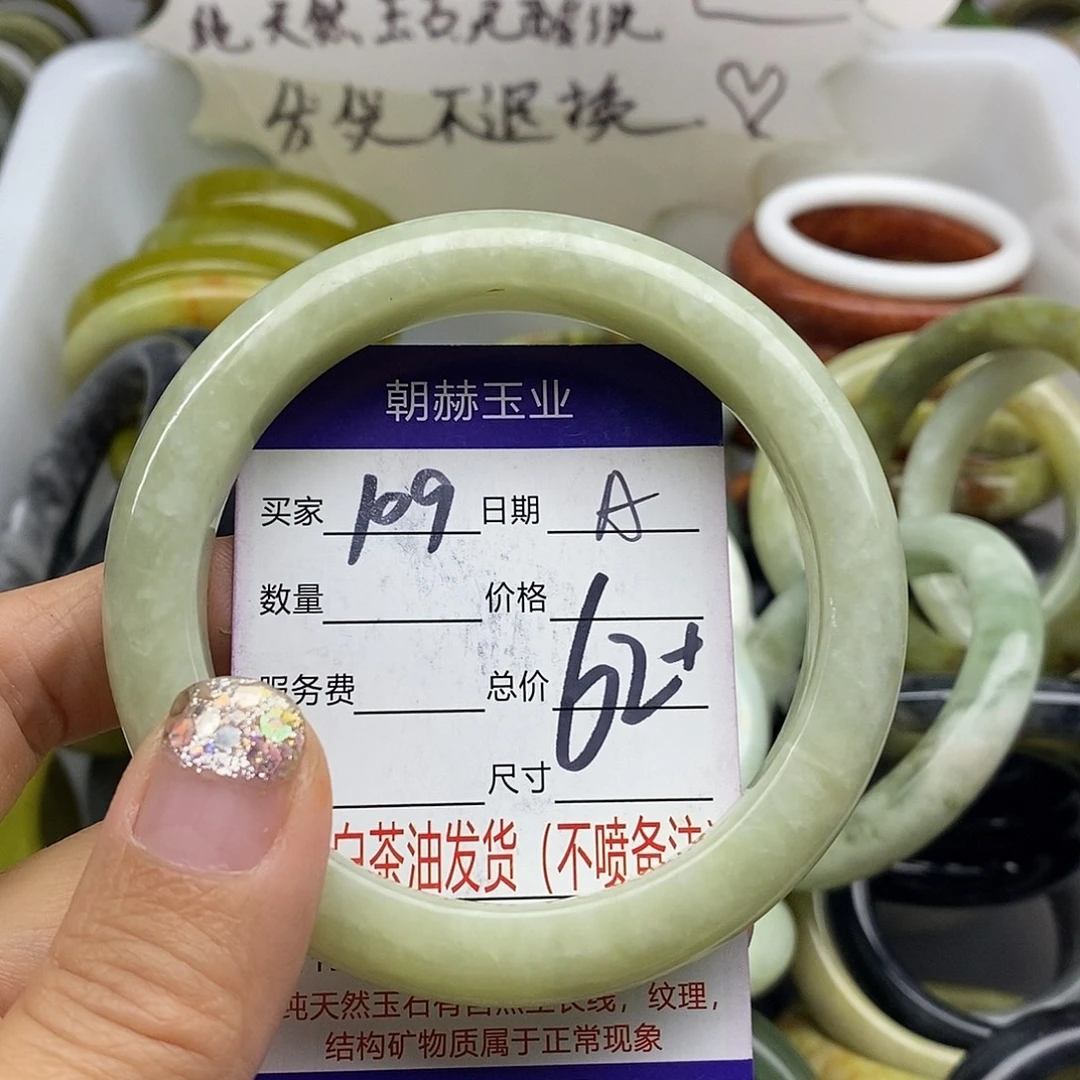 纯天然玉石无酸洗
售后不退换
朝赫玉业
买家 109 日期 A
数量 价格
服务费 总价 62+
尺寸
白茶油发货（不喷备注
纯天然玉石有自然生长线，纹理，
结构矿物质属于正常现象